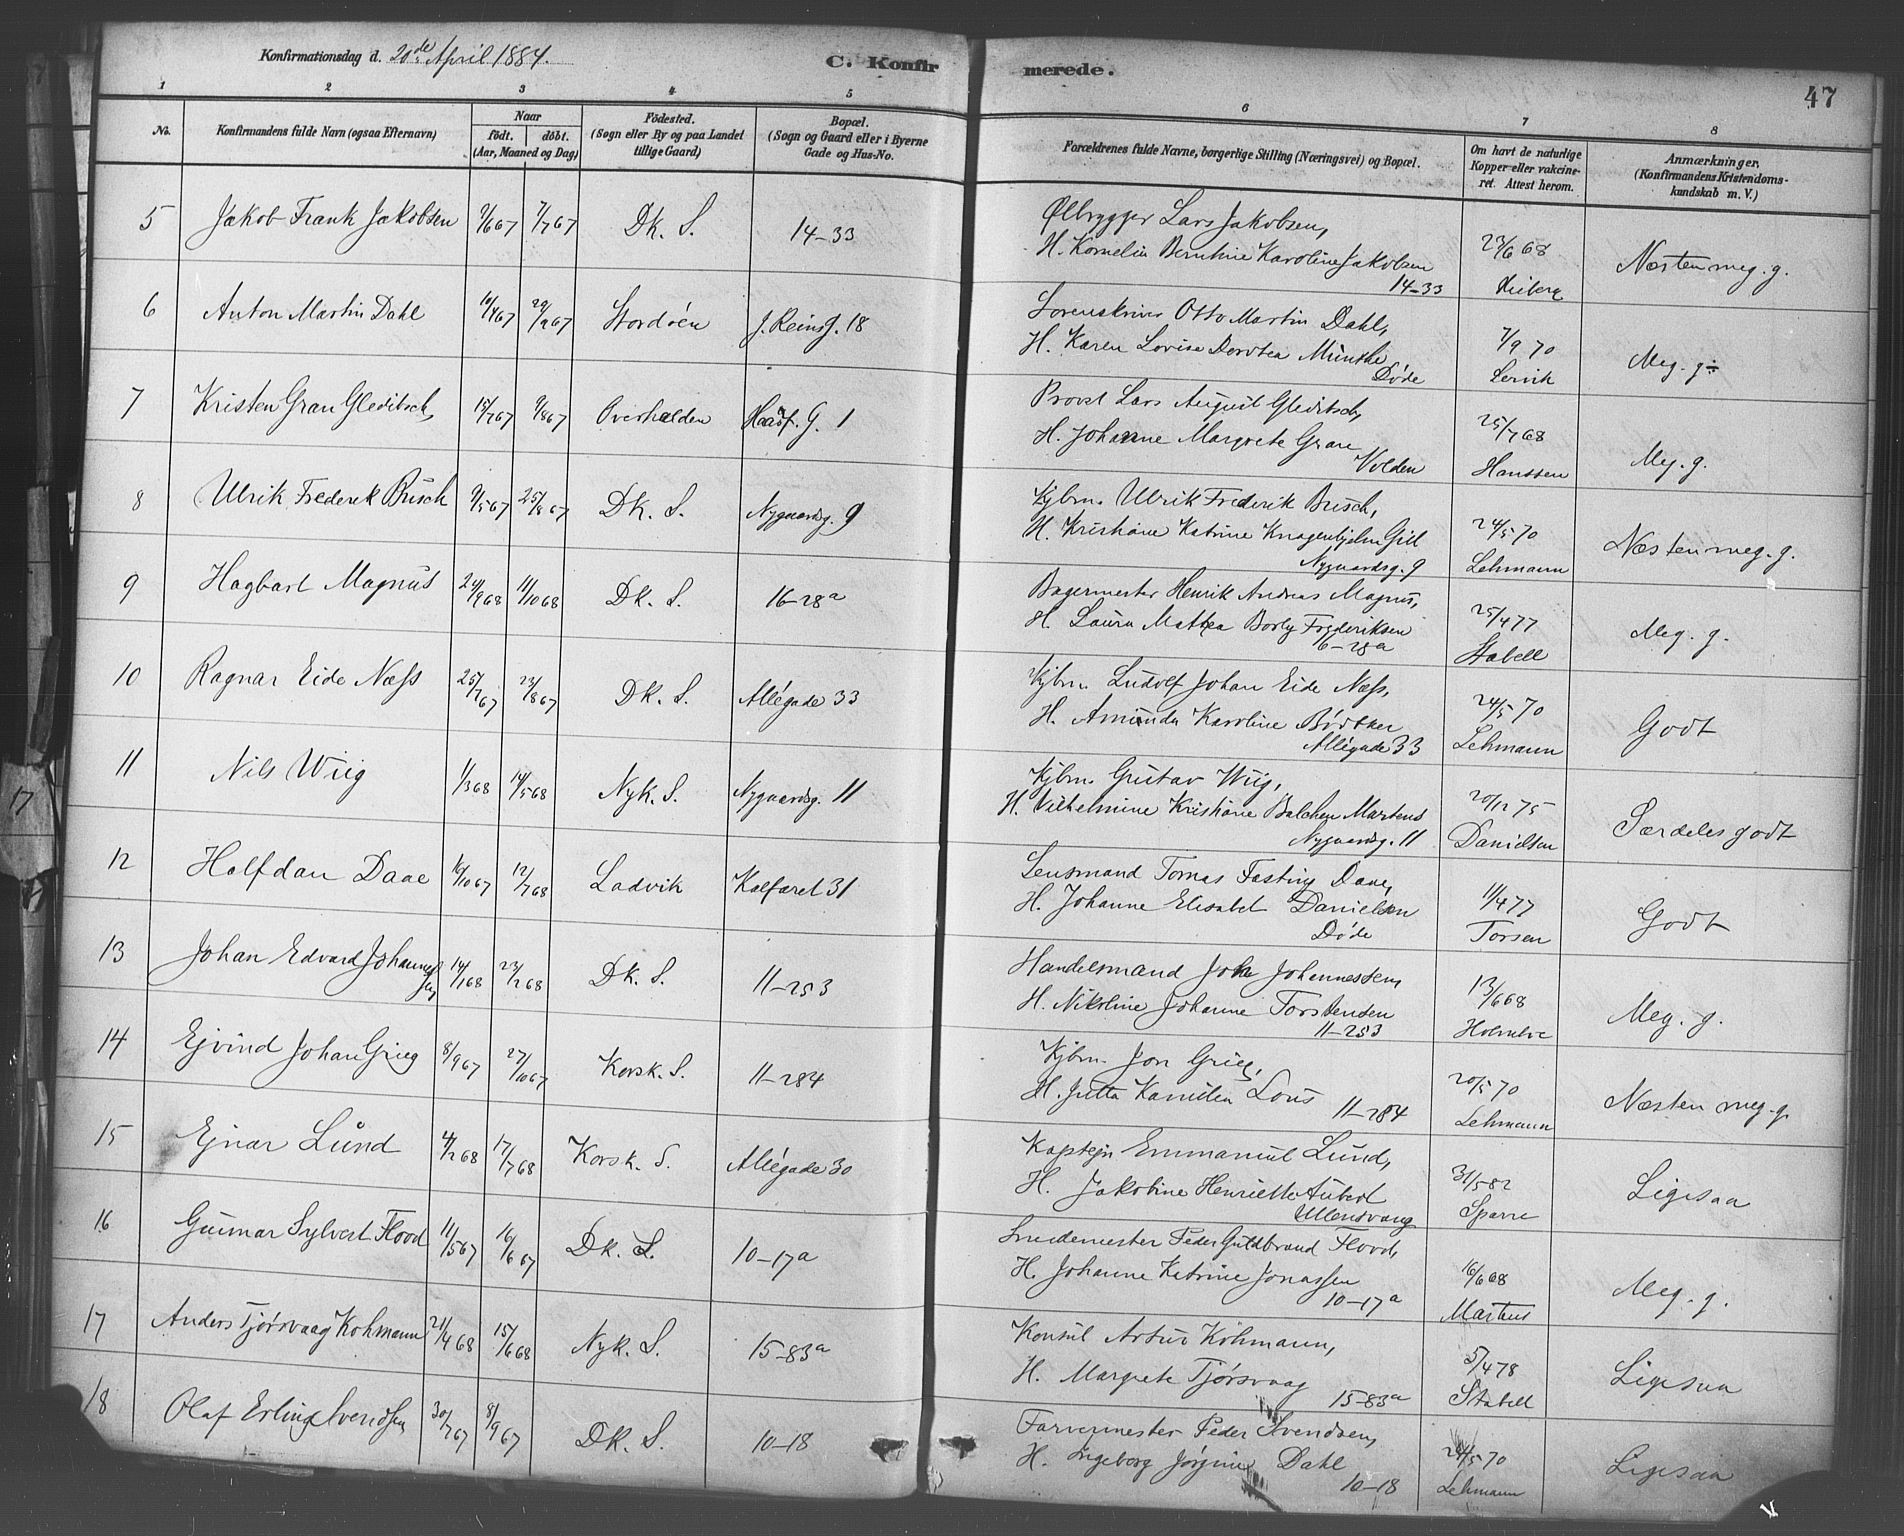 Konfirmationsdag d. 20de April 1884.
C. Konfir
merede.
47
1 2 3 4 5 6 7 8
No.
Konfirmandens fulde Navn (ogsaa Efternavn)
Naar
födt. döbt.
(Aar, Maaned og Dag)
Födested.
(Sogn eller By og paa Landet
tillige Gaard)
Bopæl.
(Sogn og Gaard eller i Byerne
Gade og Hus-No.
Forældrenes fulde Navne, borgerlige Stilling (Næringsvei) og Bopæl.
Om havt de naturlige
Kopper eller vakcine-
ret. Attest herom.
Anmærkninger.
(Konfirmandens Kristendoms-
kundskab m. V.)
5 Jakob Frank Jakobsen 9/6 67 7/7 67 Dk. S. 14–33
Ølbrygger Lars Jakobsen,
H. Kornelia Berntine Karoline Jakobsen
14–33
23/6 68
Næsten meg. g.
6 Anton Martin Dahl 29/9 67 Stordöen J. Reinsg. 18
Sorenskriver Otto Martin Dahl,
H. Karen Lovise Dorotea Münthe
Døde
7/9 70
Lervik
Meg. g÷
7 Kristen Gran Gleditsch, 15/7 67 9/8 67 Overhalden G. 1
Provst Lars August Gleditsch,
H. Johanne Margrete Gran
Volden
25/7 68
Hanssen
Meg. g.
8 Ulrik Frederik Büsch 9/5 67 25/8 67 Dk. S. Nygaardsg. 9
Kjbm. Ulrik Frederik Büsch,
H. Kristiane Katrine Knagenhjelm Gill
Nygaardsg. 9
24/5 70
Lehmann
Næsten meg. g.
9 Hagbart Magnus 24/9 68 11/10 68 Dk. S. 16–28a
Bagermester Henrik Andreas Magnus,
H. Laura Mathea Frederiksen
16–28a
25/4 77
Stabell
Meg. g.
10 Ragnar Eide Næss 25/7 67 23/8 67 Dk. S. Allégade 33
Kjbm. Ludolf Johan Eide Næss,
H. Amanda Karoline Bødtker
Allégade 33
24/5 70
Lehmann
Godt
11 Nils Wiig 1/3 68 14/5 68 Nyk. S. Nygaardsg. 11
Kjbm. Gustav Wiig,
H. Vilhelmine Kristiane Balchen Martens
Nygaardsg. 11
20/12 75
Danielsen
Særdeles godt
12 Halfdan Daae 16/10 67 12/7 68 Ladvik Kalfaret 31
Lensmand Tomas Fasting Daae,
H. Johanne Elisabet Danielsen
Døde
11/4 77
Torsen
Godt
13 Johan Edvard Johannessen 14/1 68 23/2 68 Dk. S. 11–253
Handelsmand John Johannessen,
H. Nikoline Johanne Torstensen
11–253
13/6 68
Meg. g.
14 Ejvind Johan Grieg 8/9 67 27/10 67 Korsk. S. 11–284
Kjbm. Jon Grieg,
H. Jutta Kamilla Lous
11–284
20/5 70
Lehmann
Næsten meg. g.
15 Ejnar Lund 4/2 68 17/7 68 Korsk. S. Allégade 30
Kaptejn Emmanuel Lund,
H. Jakobine Henriette Aubert
Ullensvang
31/5 82
Sparre
Ligesaa
16 Gunnar Sylvest Flood 11/5 67 16/6 67 Dk. S. 10–17a
Smedemester Peder Guldbrand Flood,
H. Johanne Katrine Jonassen
10–17a
16/6 68
Martens
Meg. g.
17 Anders Tjørsvaag Kohmann 21/4 68 15/6 68 Nyk. S. 15–83a
Konsul Artur Kohmann,
H. Margrete Tjørsvaag
15–83a
5/4 78
Stabell
Ligesaa
18 Olaf Erling Svendsen 30/7 67 8/9 67 Dk. S. 10–18
Farvermester Peder Svendsen,
H. Ingeborg Jørgine Dahl
10–18
24/5 70
Lehmann
Ligesaa
17